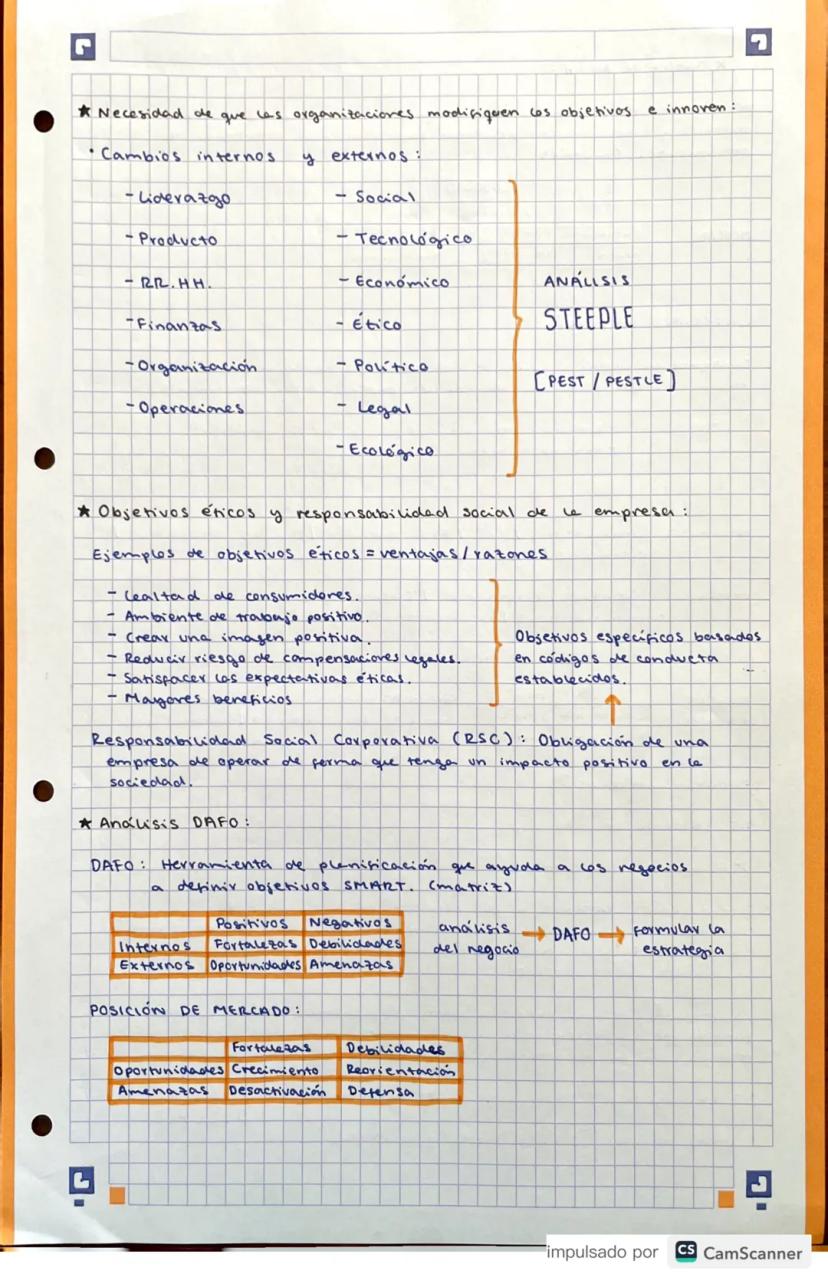 ★ Necesidad de que las organizaciones modifiquen los objetivos e innoven:
• Cambios internos y externos:
- Liderazgo - Social
- Producto - Tecnológico
- RR.HH. - Económico
- Finanzas - Ético
- Organización - Político
- Operaciones - Legal
- Ecológico
ANÁLISIS
STEEPLE
[PEST / PESTLE]
★ Objetivos éticos y responsabilidad social de la empresa:
Ejemplos de objetivos éticos = ventajas / razones
- Lealtad de consumidores.
- Ambiente de trabajo positivo.
- Crear una imagen positiva.
- Reducir riesgo de compensaciones legales.
- Satisfacer las expectativas éticas.
- Mayores beneficios
Objetivos específicos basados
en códigos de conducta
establecidos.
Responsabilidad Social Corporativa (RSC): Obligación de una
empresa de operar de forma que tenga un impacto positivo en la
sociedad.
★ Análisis DAFO:
DAFO: Herramienta de planificación que ayuda a los negocios
a definir objetivos SMART. (matriz)
Positivos Negativos
Internos Fortalezas Debilidades
Externos Oportunidades Amenazas
análisis → DAFO → Formular la
del negocio estrategia
POSICIÓN DE MERCADO:
Fortalezas Debilidades
Oportunidades Crecimiento Reorientación
Amenazas Desactivación Defensa
impulsado por CS CamScanner